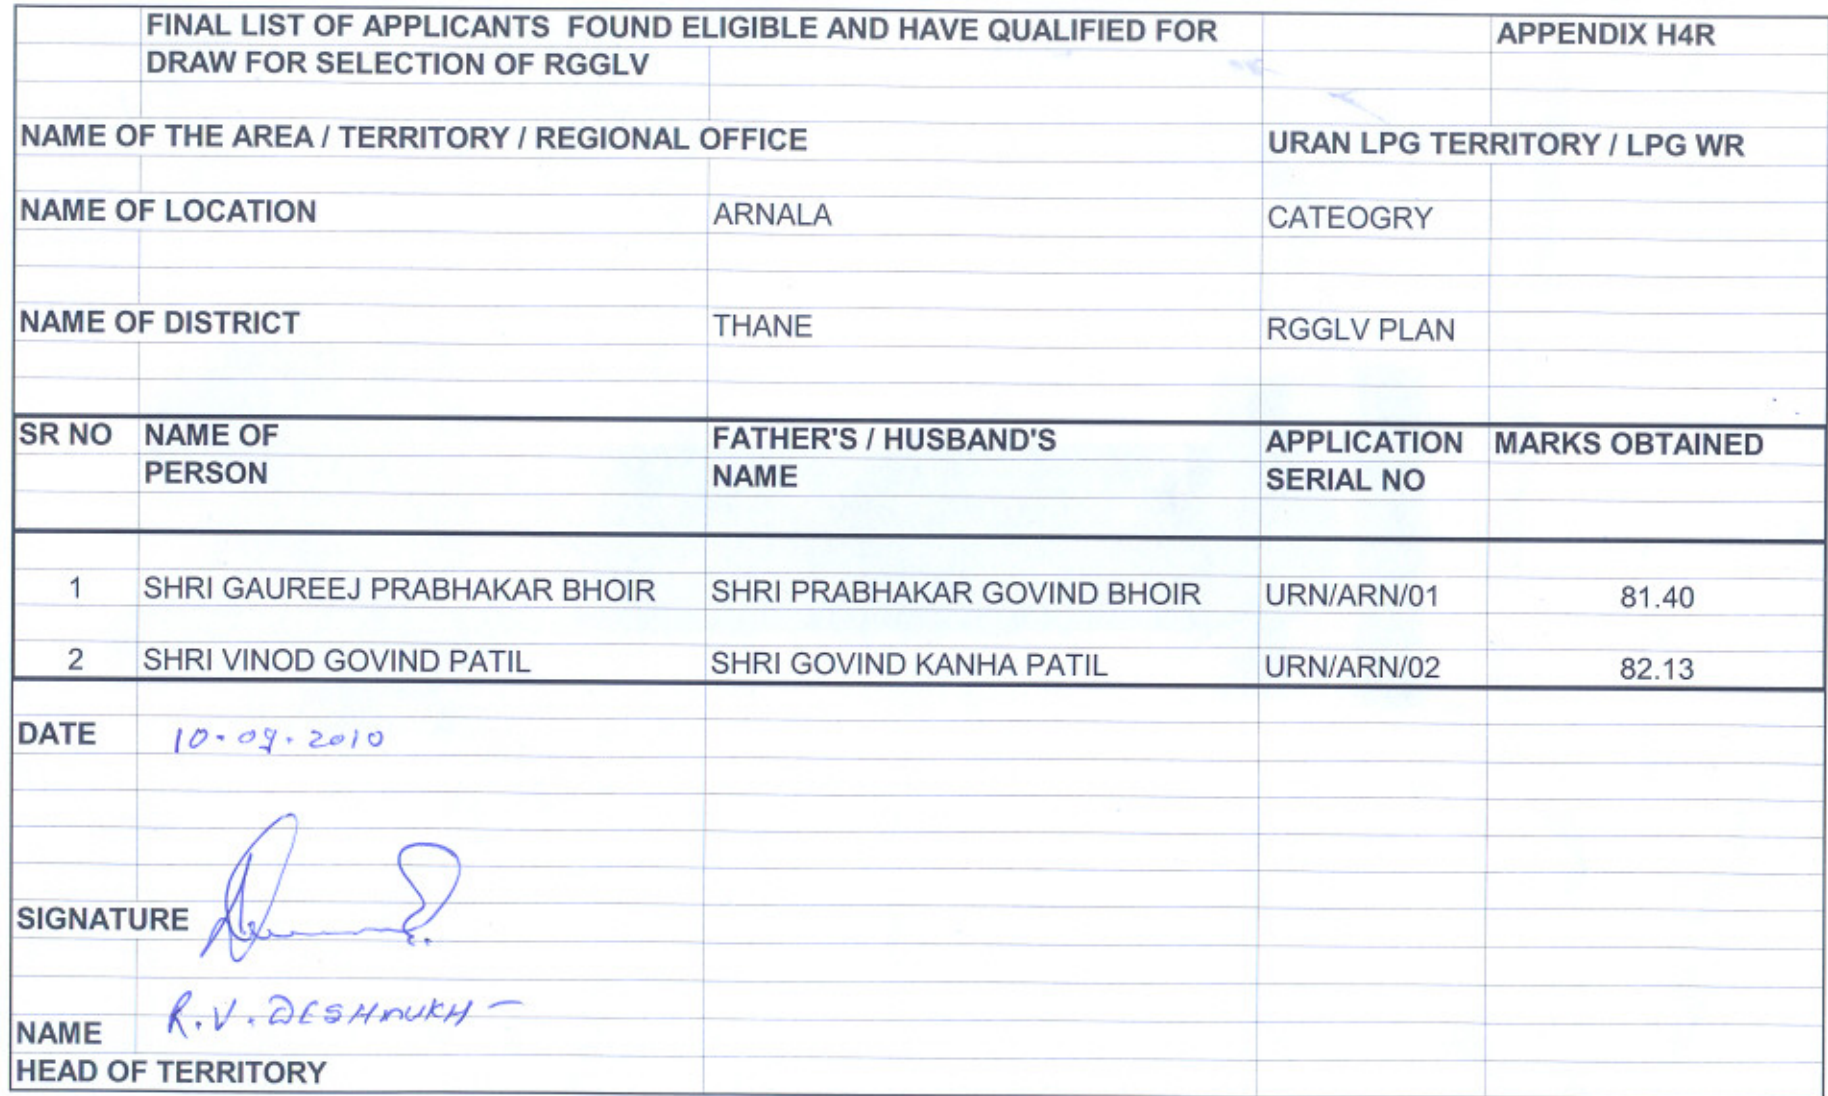 FINAL LIST OF APPLICANTS FOUND ELIGIBLE AND HAVE QUALIFIED FOR APPENDIX H4R
DRAW FOR SELECTION OF RGGLV
NAME OF THE AREA / TERRITORY / REGIONAL OFFICE URAN LPG TERRITORY / LPG WR
NAME OF LOCATION ARNALA CATEOGRY
NAME OF DISTRICT THANE RGGLV PLAN
SR NO NAME OF FATHER'S / HUSBAND'S APPLICATION MARKS OBTAINED
PERSON NAME SERIAL NO
1 SHRI GAUREEJ PRABHAKAR BHOIR SHRI PRABHAKAR GOVIND BHOIR URN/ARN/01 81.40
2 SHRI VINOD GOVIND PATIL SHRI GOVIND KANHA PATIL URN/ARN/02 82.13
DATE 10.09.2010
SIGNATURE
NAME R.V. DESHMUKH
HEAD OF TERRITORY